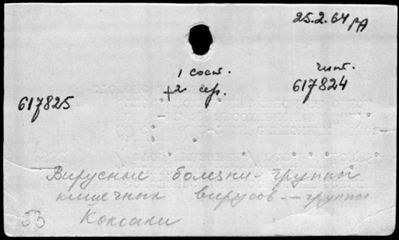 25.2.64 РА
1 сост. чит.
617825 +2 сер. 617824
Вирусные болезни - группы
кишечных вирусов -- группы
53 Коксаки